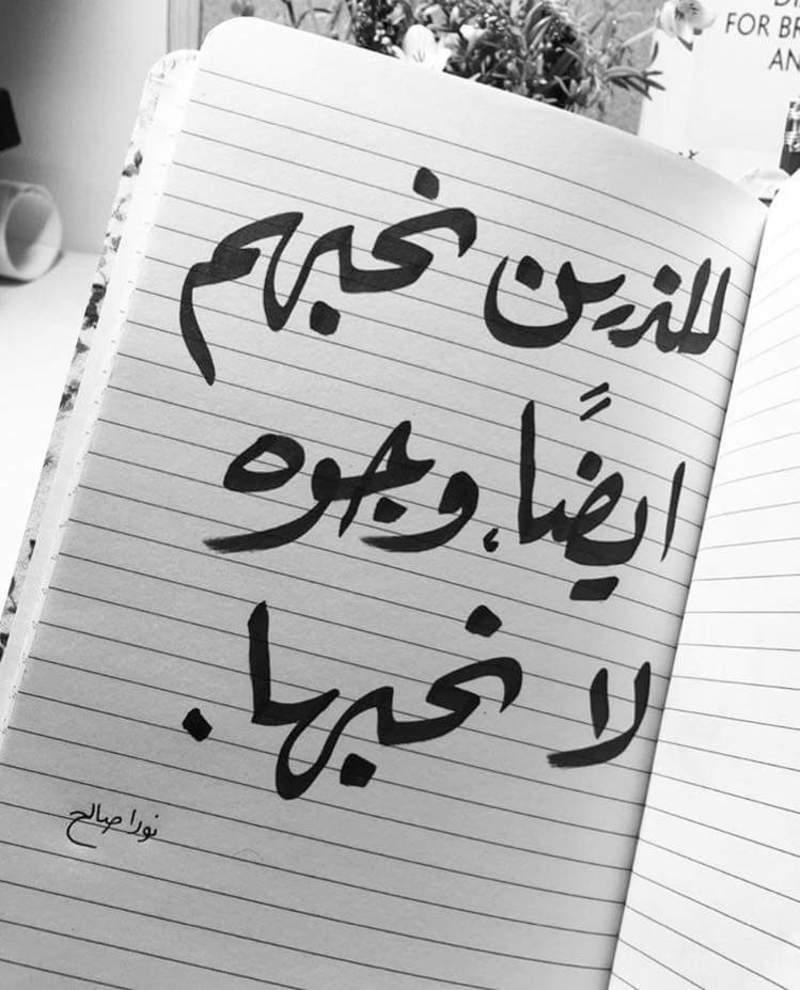 FOR BR
AN
للذين نحبهم
ايضًا، وجوه
لا نحبها.
نورا صالح